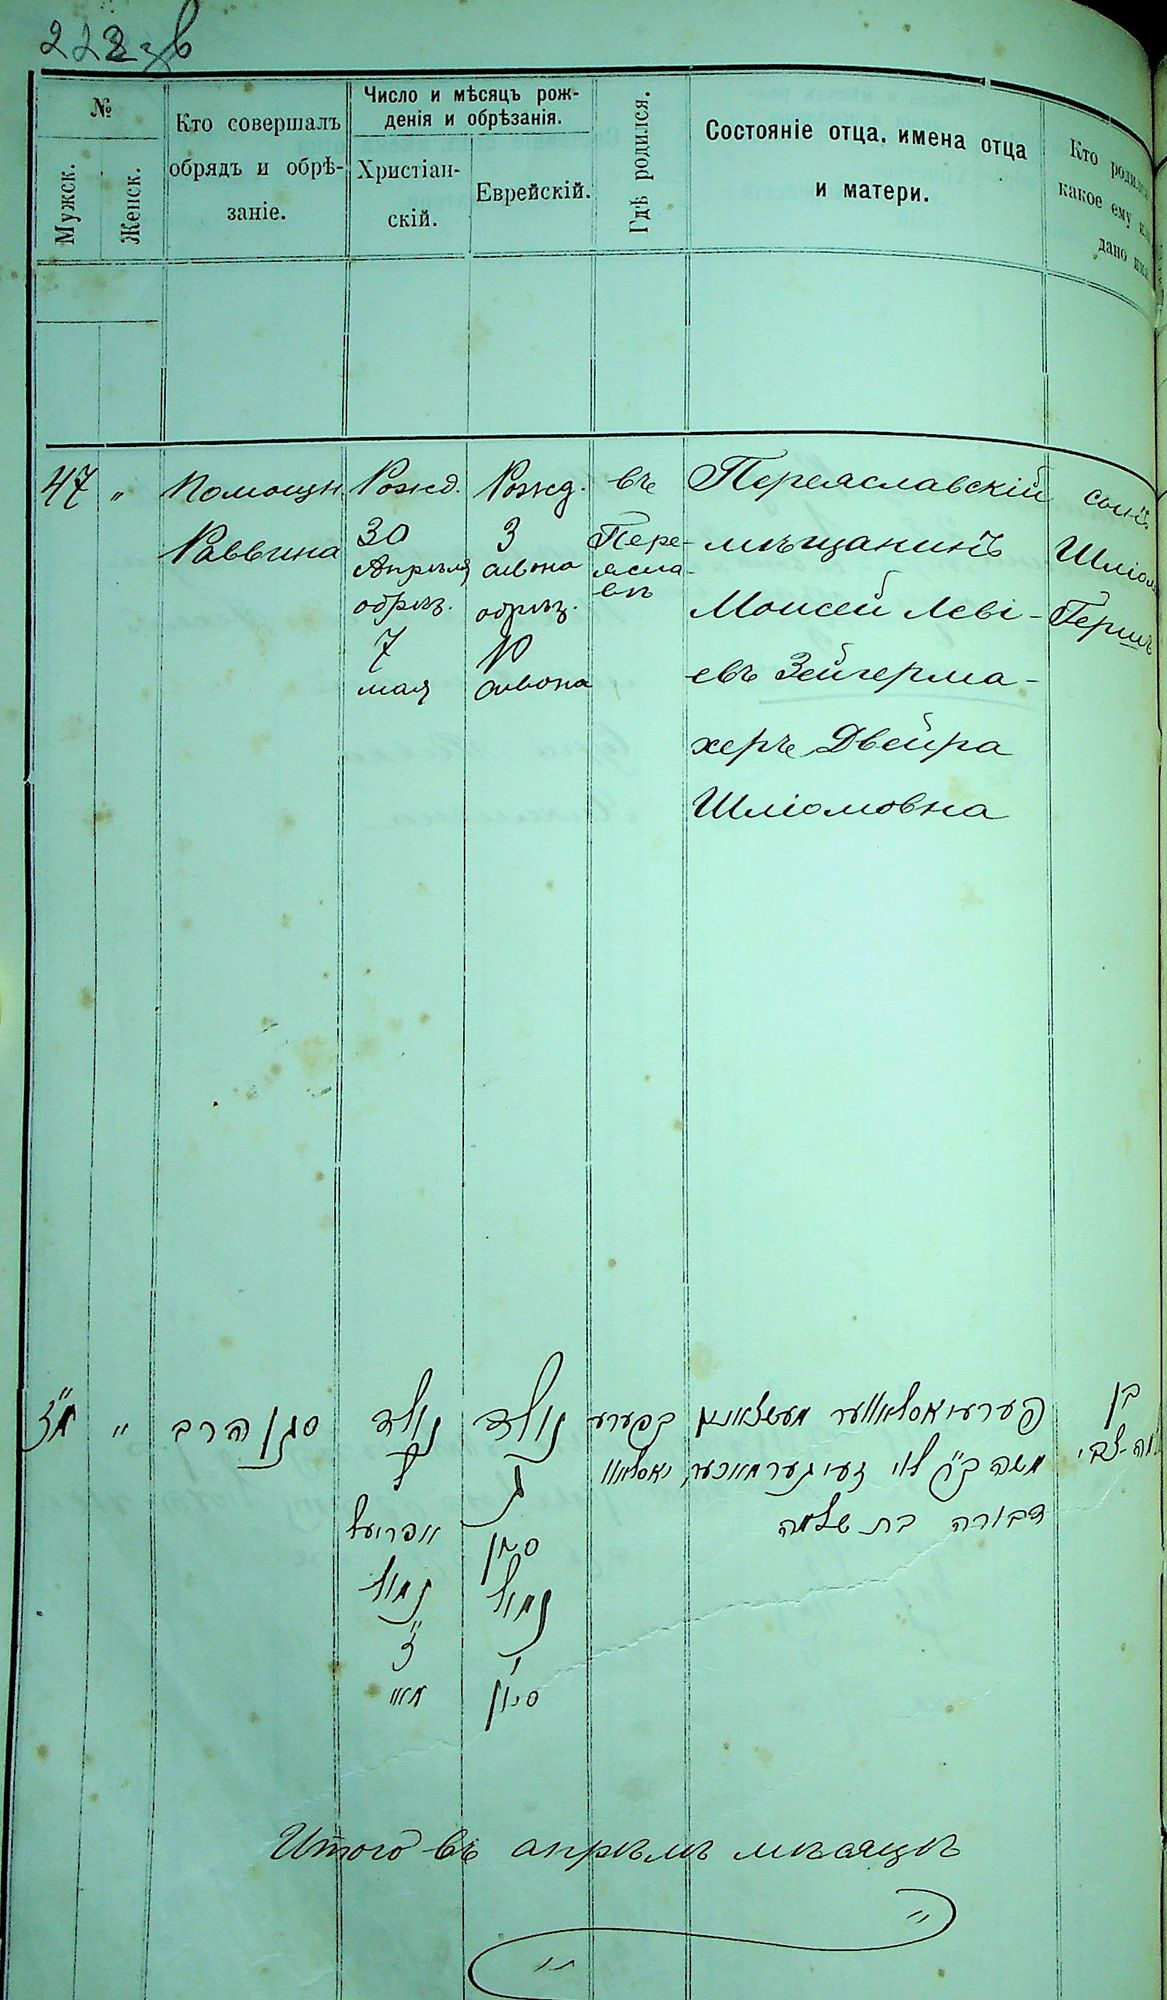 222 зв
№
Мужск.
Женск.
Кто совершалъ
обрядъ и обрѣ-
заніе.
Число и мѣсяцъ рож-
денія и обрѣзанія.
Христіан-
скій.
Еврейскій.
Гдѣ родился.
Состояніе отца, имена отца
и матери.
Кто родился
какое ему
дано
47
"
Помощн.
Раввина
Рожд.
30
Апрѣля
обрѣз.
7
мая
Рожд.
3
сивона
обрѣз.
10
сивона
въ
Пере-
ясла-
вѣ
Переяславскій
мѣщанинъ
Моисей Леві-
евъ Зейгерма-
херъ Двейра
Шліомовна
сынъ
Шліом
Гершъ
מ"ז
"
סגן הרב
נולד
ל
אפריעל
נמול
ז"
מאי
נולד
ג
סיון
נמול
י'
סיון
בפערע
יאסלאוו
פערעיאסלאווער מעשצאנין
משה ב"ר לוי זעיגערמאכער,
דבורה בת שלמה
בן
Итого въ апрѣлѣ мѣсяцѣ
"
"